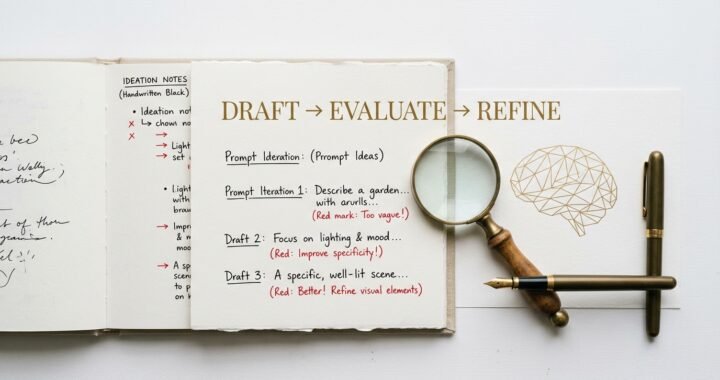 bee
Wally
of them
IDEATION NOTES
(Handwritten Black)
• Ideation not
x ↳ chown no
x →
→ Light
→ set
• Light
with
brau
→ Impro
& m
moo
→ A sp
scen
to p
on k
DRAFT → EVALUATE → REFINE
Prompt Ideration: (Prompt Ideas)
Prompt Iteration 1: Describe a garden...
with arurlls...
(Red mark: Too vague!)
Draft 2: Focus on lighting & mood...
(Red: Improve specificity!)
Draft 3: A specific, well-lit scene...
(Red: Better! Refine visual elements)